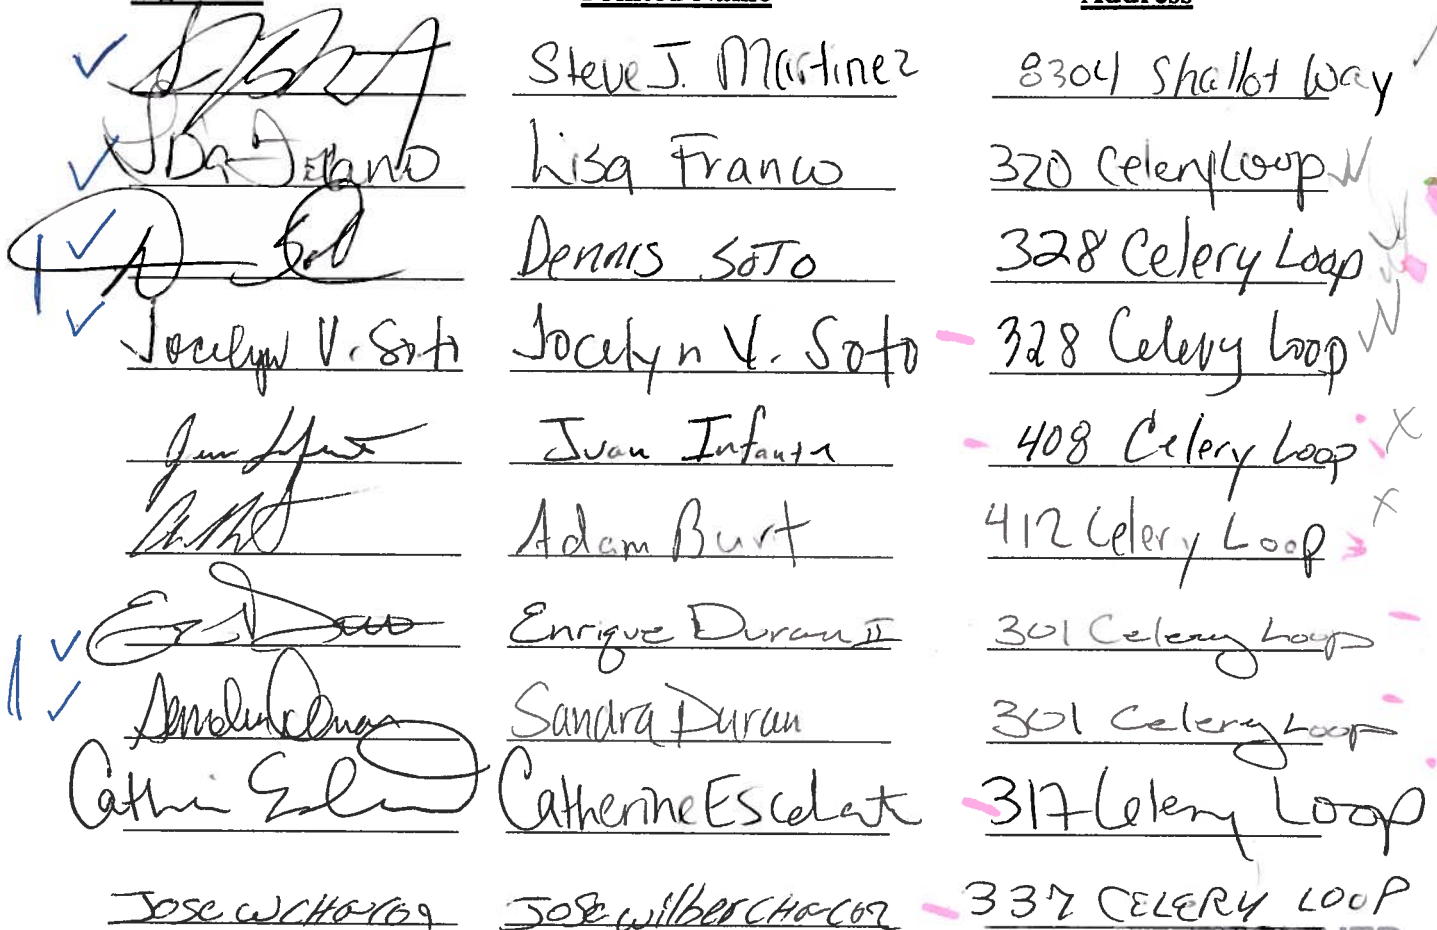 Printed Name Address
Steve J. Martinez 8304 Shallot Way
Lisa Franco Lisa Franco 320 Celery Loop
Dennis Soto 328 Celery Loop
Jocelyn V. Soto Jocelyn V. Soto 328 Celery Loop
Juan Infante 408 Celery Loop
Adam Burt 412 Celery Loop
Enrique Duran II 301 Celery Loop
Sandra Duran 301 Celery Loop
Catherine 317 Celery Loop
Jose Jose Wilber 337 CELERY LOOP